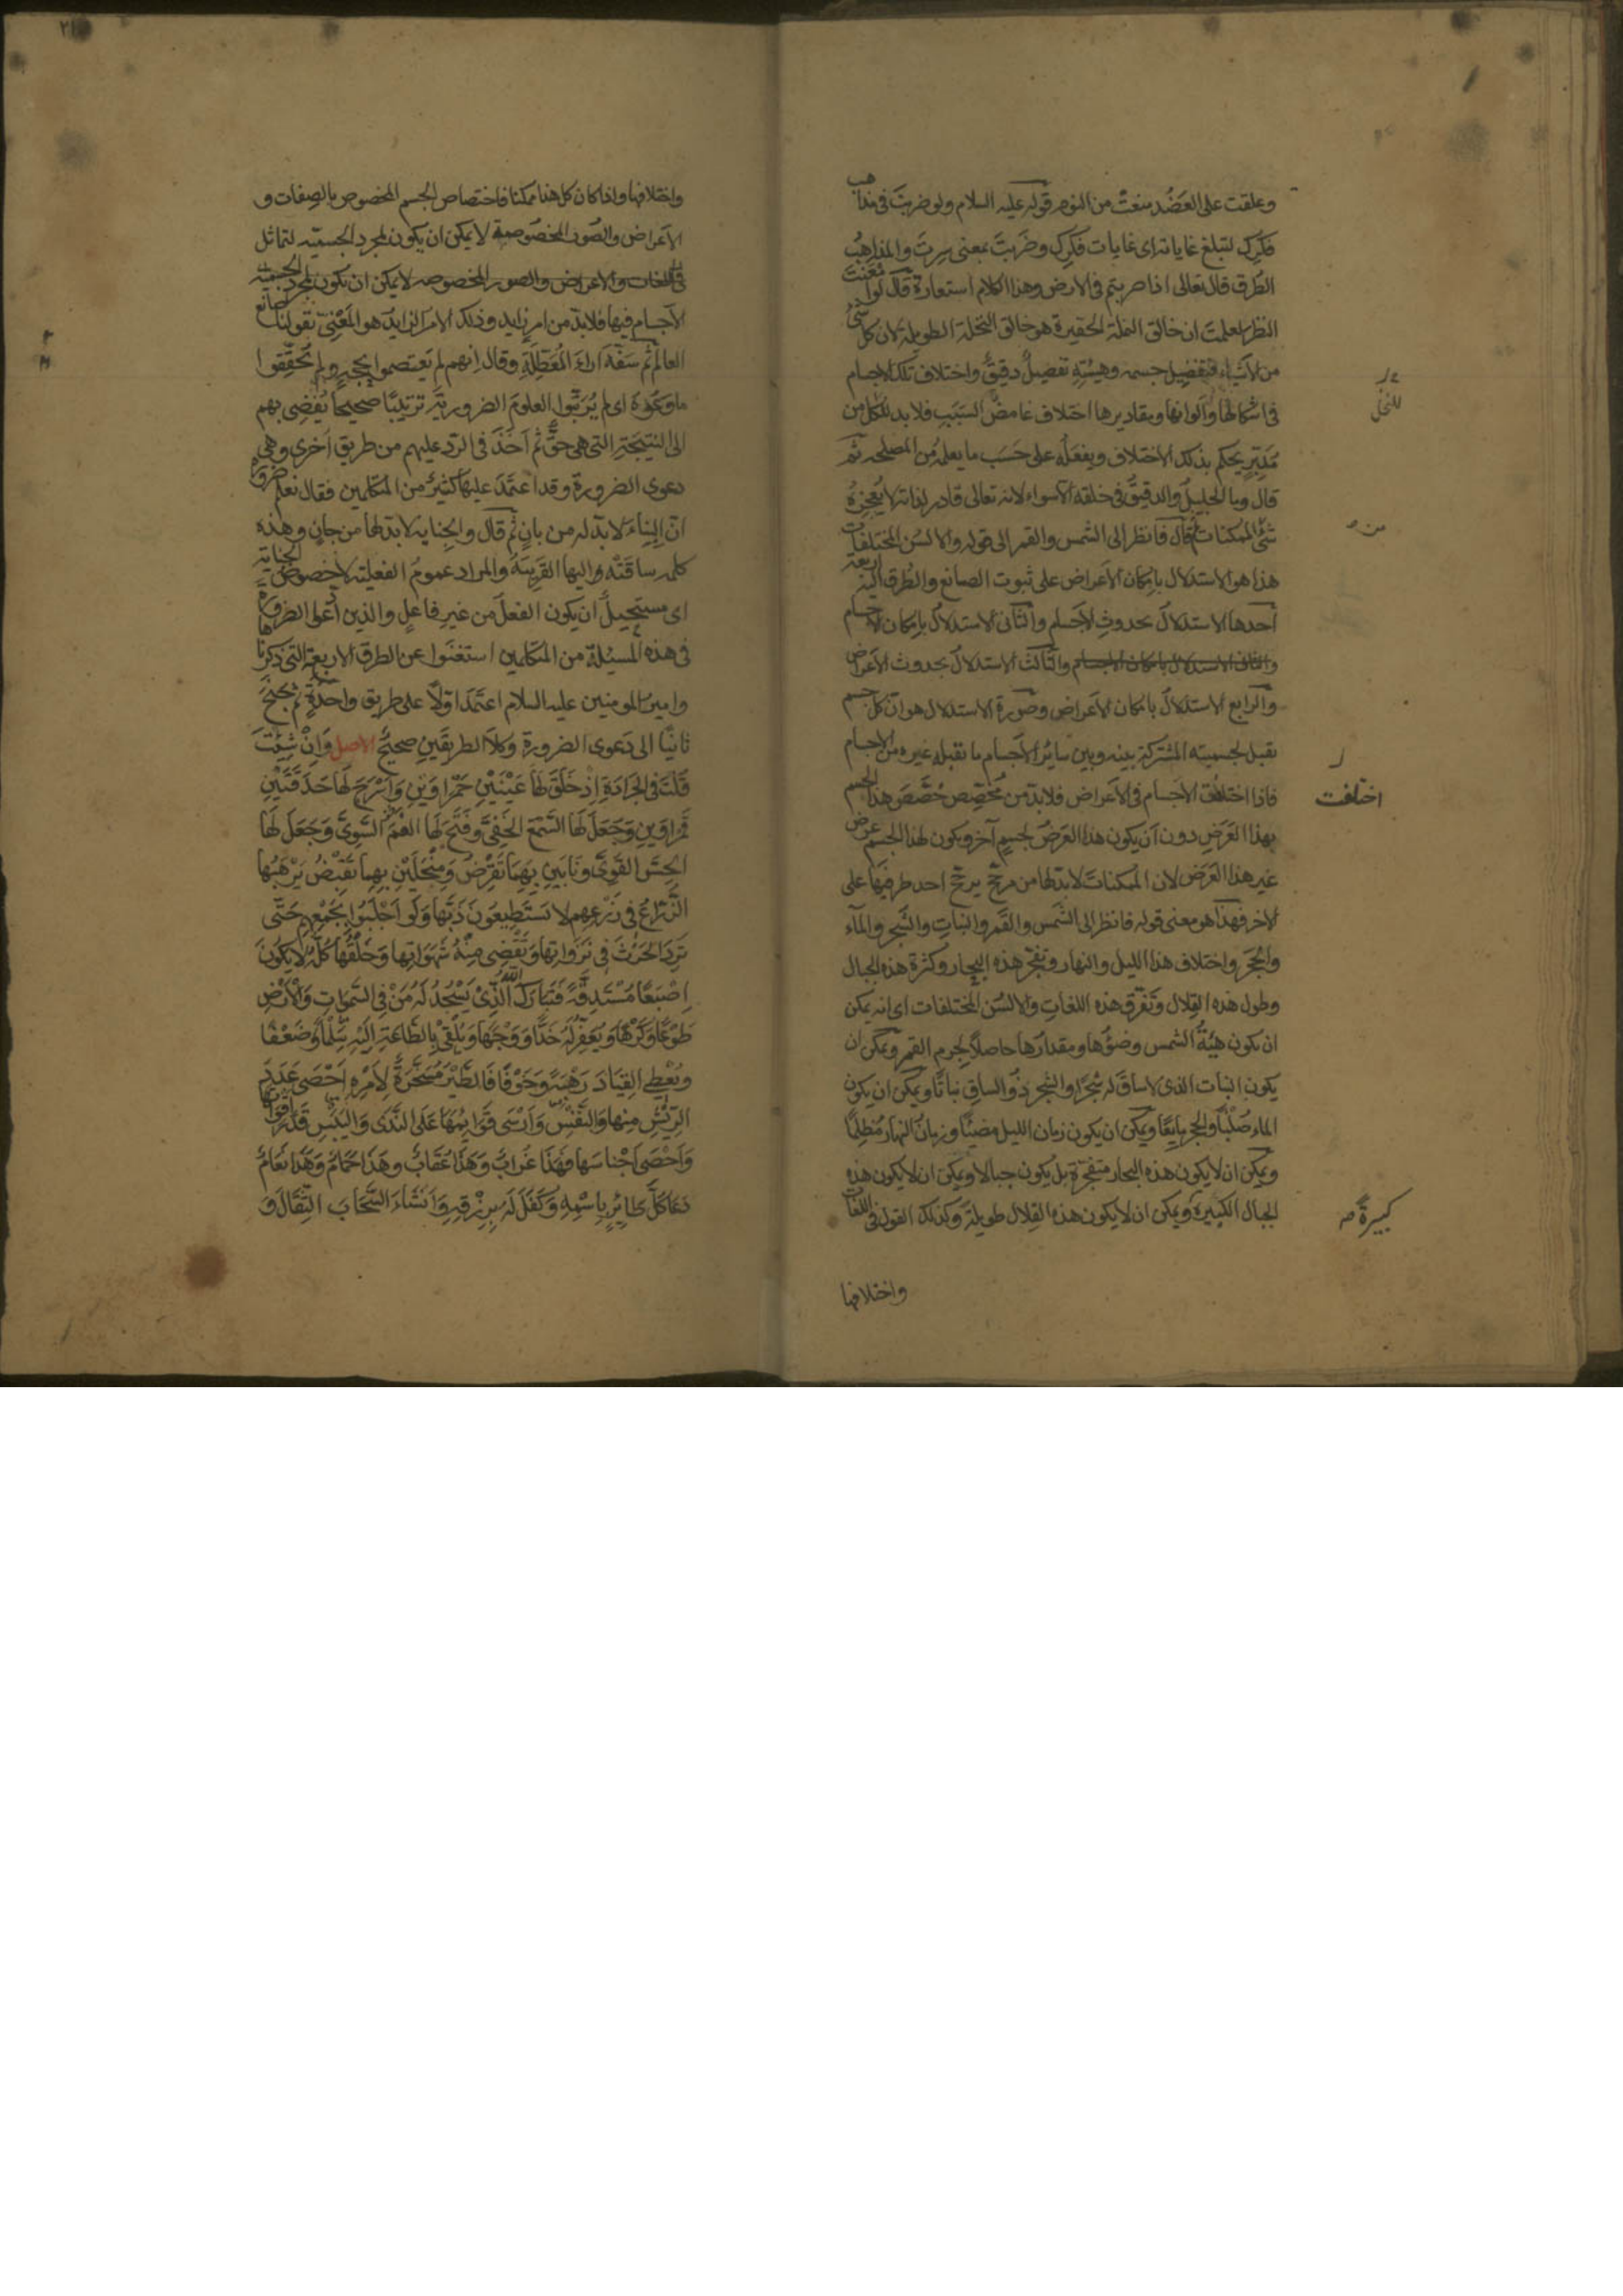 وعلقت على العَضُد منعت من النوم قوله عليه السلام ولو ضربتَ فى مذاهب
فكرك لتبلغ غاياته اى غايات فكرك وضَربتَ بمعنى سِرتَ والمذاهبُ
الطُرق قال تعالى اذا ضربتم فى الارض وهذا الكلام استعارة قال لو امعَنتَ
النظر لعلمتَ ان خالق النملة الحقيرة هو خالق النخلة الطويلة لان كل شئ
من الاشياء فتفضِيل جسمه وهيئتِه تفصيلٌ دقيقٌ واختلاف تلك الاجسام
فى اشكالها وألوانها ومقاديرها اختلاف غامضُ السَبَبِ فلا بد للكل من
مُدَبِّرٍ يحكم بذلك الاختلاف ويفعَلُه على حَسَب ما يعلمُه من المصلحه ثم
قال وما الجليلُ والدقيقُ فى خلقه الا سواء لانه تعالى قادر لذاته لا يُعجِزهُ
شئٌ الممكنات ثم قال فانظر الى الشمس والقمر الى قوله والالسُن المختلفات
هذا هو الاستدلال بامكان الاعراض على ثبوت الصانع والطُرق اليه اربعة
احدها الاستدلال بحدوثِ الاجسام والثانى الاستدلال بامكان الاجسام
والثانى الاستدلال بامكان الاجسام والثالث الاستدلال بحدوث الأعراض
والرابع الاستدلال بامكان الاعراض وصُورة الاستدلال هو ان كل جسم
يقبل لجسميته المشتركة بينه وبين ساير الاجسام ما يقبله غيره من الاجسام
فاذا اختلفت الاجسام فى الاعراض فلا بد من مُخصِّص خَصَّصَ هذا الجسم
بهذا العَرَضِ دون اَن يكون هذا العَرَضُ لجسمٍ آخر ويكون لهذا الجسم عرض
غير هذا العَرَض لان الممكناتَ لابدّ لها من مرجّح يرجّح احد طرفيها على
الاخر فهذا هو معنى قوله فانظر الى الشمس والقمر والنباتِ والشجر والمآء
والحجَر واختلاف هذا الليل والنهار وتفجّر هذه البحار وكثرة هذه الجبال
وطول هذه القِلال وتَفَرّق هذه اللغاتِ والالسُن المختلفات اى انه يمكن
ان يكون هيئةُ الشمس وضوءها ومقدارها حاصلاً لجرم القمر ويمكن ان
يكون النبات الذى لا ساقَ له شجرًا والشجر ذو الساقِ نباتًا ويمكن ان يكون
الماء صُلبًا والحجر مايعًا ويمكن ان يكون زمان الليل مضيئًا وزمان النهار مُظلِمًا
ويمكن ان لا يكون هذه البحار متفجّرة بل يكون جبالا ويمكن ان لا يكون هذه
الجبال الكبيرة ويمكن ان لا يكون هذه القِلال طويلة وكذلك القول فى اللغات
للنخل
من
اختلفت
كبيرة صه
واختلافها
٢١
واختلافها واذا كان كل هذا ممكنا فاختصاص الجسم المخصوص بالصِفات و
الاعراض والصُور المخصُوصة لا يمكن ان يكون لمجرد الجسميّه لتماثل
فى اللغات والاعراض والصور المخصوصه لا يمكن ان يكون لمجرد الجسميه
الاجسام فيها فلا بدّ من امرٍ زايد وذلك الامر الزايد هو المَعْنِىّ بقولنا صانع
العالم ثم سَفَّه اَراءَ المُعَطِّلَةِ وقال انهم لم يَعتصموا بحجه ولم يُحَقِّقوا
ما وعَوْهُ اى لم يُرَتّبوا العلومَ الضرورية ترتيبًا صحيحا يُفضِى بهم
الى النتيجة التى هى حقٌّ ثم اَخَذَ فى الرّد عليهم من طريق اُخرى وهى
دعوى الضرورة وقد اعتَمَدَ عليها كثيرٌ من المتكلمين فقال نعلم ضرورة
انّ البِناءَ لا بدّ له من بانٍ ثم قال والجناية لا بدّ لها من جانٍ وهذه
كلمه ساقَتْه اليها القَرينَةُ والمراد عمومُ الفعلية لا خصوصُ الجناية
اى مستحيلٌ ان يكون الفعلَ من غيرِ فاعلٍ والذين ادّعوا الضرورة
فى هذه المسئلة من المتكلمين استغنَوا عن الطرق الاربعة التى ذكرناها
وامير المومنين عليه السلام اعتمَدَ اوّلاً على طريق واحدةٍ ثم جَنَحَ
ثانيًا الى دَعوى الضرورة وكلاَ الطريقَينِ صحيحٌ الاصل وَاِنْ شِئْتَ
قُلْتَ فى الجَرَادَةِ اِذ خَلَقَ لَها عَيْنَيْنِ حَمْرَاوَيْنِ وَاَسْرَجَ لَها حَدَقَتَيْنِ
قَمراوَينِ وَجَعَلَ لَهَا السَّمْعَ الخَفِىَّ وفَتَحَ لَها الفَمَ السَّوِىَّ وَجَعَلَ لَها
الحِسَّ القَوِىَّ ونَابَينِ بِهِمَا تَقرِضُ وَمِنْجَلَيْنِ بِهِما تَقْبِضُ يَرْهَبُها
الزُّرَّاعُ فى زَرْعِهِم لا يَستَطِيعُونَ ذَبَّها وَلَو اَجْلَبُوا بِجَمْعِهِم حَتَّى
تَرِدَ الحَرْثَ فِى نَزَوَاتِها وتَقْضِى مِنْهُ شَهَوَاتِها وَخَلْقُها كُلُّهُ لا يَكُونُ
اِصْبَعًا مُسْتَدِقَّةً فَتَبَارَكَ اللّٰهُ الَّذِىْ يَسْجُدُ لَهُ مَنْ فِى السَّمٰوَاتِ وَالْاَرْضِ
طَوْعًا وَكَرْهًا ويُعَفِّرُ لَهُ خَدًّا وَوَجْهًا ويُلْقِى بِالطَّاعَةِ اِلَيْهِ سِلْمًا وَضَعْفًا
ويُعْطِى القِيَادَ رَهْبَةً وَخَوْفًا فَالطَّيْرُ مُسَخَّرَةٌ لِاَمْرِهِ اَحْصَى عَدَدَ
الرِّيْشِ مِنها وَالنَّفَسِ وَاَرْسَى قَوَايِمَهَا عَلَى النَّدَى وَاليَبَسِ قَدَّرَ اَقْوَاتَها
وَاَحْصَى اَجْناسَها فَهٰذَا غُرَابٌ وَهٰذَا عُقَابٌ وهٰذَا حَمَامٌ وَهٰذَا نَعَامٌ
دَعَا كُلَّ طَائِرٍ بِاسْمِهِ وَكَفَلَ لَهُ بِرِزْقِهِ وَاَنشَاءَ السَّحَابَ الثِّقَالَ وَ